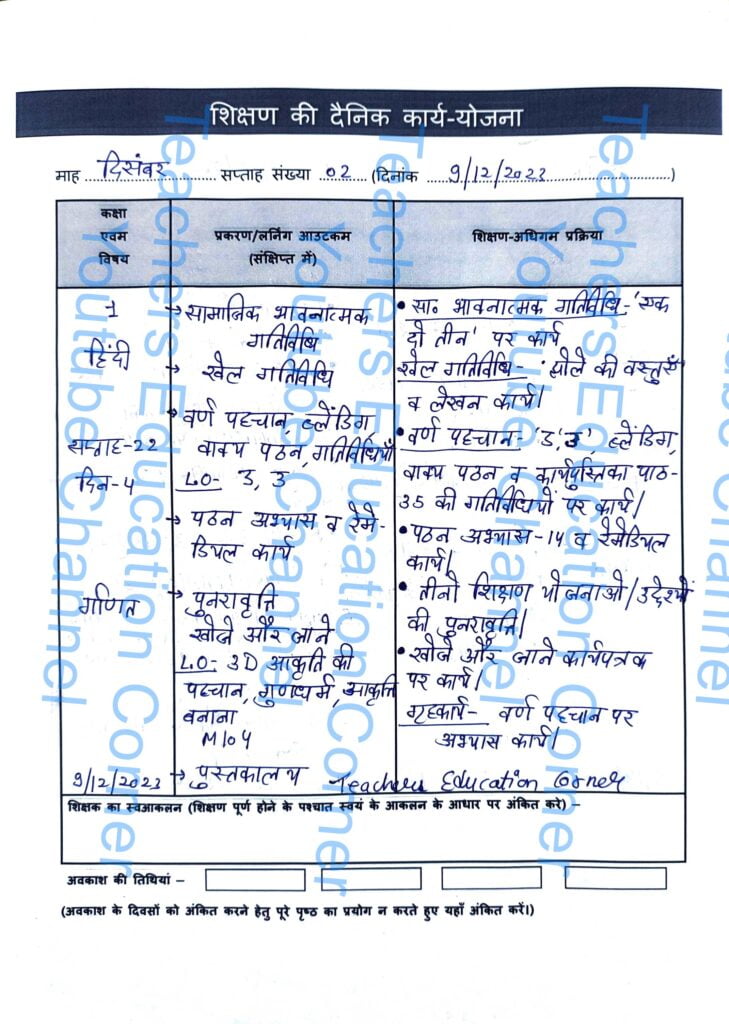 शिक्षण की दैनिक कार्य-योजना
माह दिसंबर सप्ताह संख्या 02 (दिनांक 9/12/2023)
कक्षा
एवम
विषय
प्रकरण/लर्निंग आउटकम
(संक्षिप्त में)
शिक्षण-अधिगम प्रक्रिया
1
हिंदी
सप्ताह-22
दिन-4
गणित
9/12/2023
→ सामाजिक भावनात्मक
गतिविधि
→ खेल गतिविधि
→ वर्ण पहचान, ब्लेंडिंग,
वाक्य पठन, गतिविधियाँ
L.O- उ, उ
→ पठन अभ्यास व रेमे-
डियल कार्य
→ पुनरावृत्ति
खोजे और जाने
L.O- 3D आकृति की
पहचान, गुणधर्म, आकृति
बनाना
M104
→ पुस्तकालय
• सा० भावनात्मक गतिविधि- 'एक
दो तीन' पर कार्य
खेल गतिविधि- झोले की वस्तुएँ
व लेखन कार्य।
• वर्ण पहचान- 'उ', 'उ', ब्लेंडिंग,
वाक्य पठन व कार्यपुस्तिका पाठ-
35 की गतिविधियों पर कार्य।
• पठन अभ्यास-14 व रेमेडियल
कार्य।
• तीनो शिक्षण योजनाओ/उद्देश्यों
की पुनरावृत्ति।
• खोजे और जाने कार्यपत्रक
पर कार्य।
गृहकार्य- वर्ण पहचान पर
अभ्यास कार्य।
Teachers Education Corner
शिक्षक का स्वआकलन (शिक्षण पूर्ण होने के पश्चात स्वयं के आकलन के आधार पर अंकित करे) –
अवकाश की तिथियां –
(अवकाश के दिवसों को अंकित करने हेतु पूरे पृष्ठ का प्रयोग न करते हुए यहाँ अंकित करें।)
Teachers Education Corner
Youtube Channel
Teachers Education Corner
Youtube Channel
Teachers Education Corner
Youtube Channel